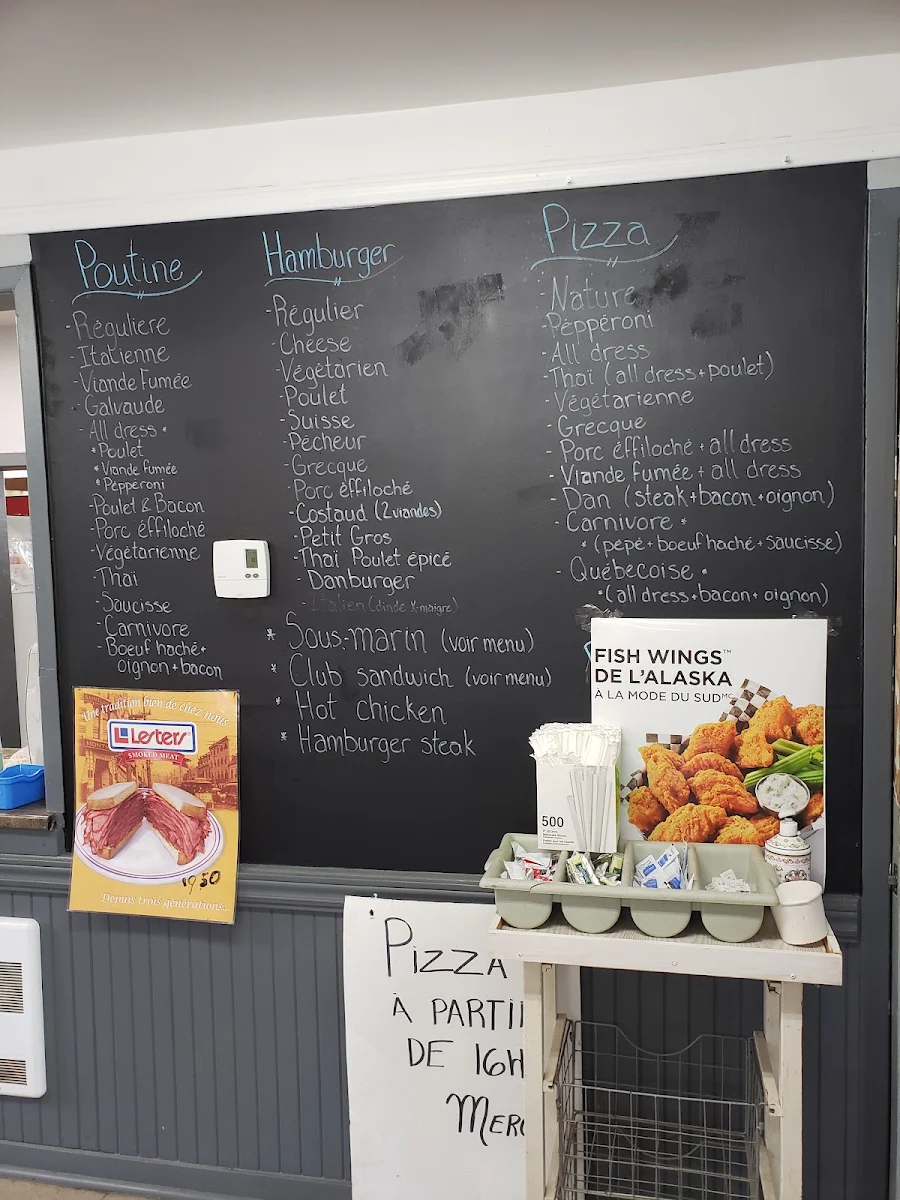 Poutine
-Régulière
-Italienne
-Viande Fumée
-Galvaude
-All dress *
*Poulet
*Viande fumée
*Pepperoni
-Poulet & Bacon
-Porc éffiloché
-Végétarienne
-Thaï
-Saucisse
-Carnivore
-Boeuf haché+
oignon+bacon
Hamburger
-Régulier
-Cheese
-Végétarien
-Poulet
-Suisse
-Pêcheur
-Grecque
-Porc éffiloché
-Costaud (2viandes)
-Petit Gros
-Thaï Poulet épicé
-Danburger
-Italien (dinde x-maigre)
* Sous-marin (voir menu)
* Club sandwich (voir menu)
* Hot chicken
* Hamburger steak
Pizza
-Nature
-Péppéroni
-All dress
-Thaï (all dress+poulet)
-Végétarienne
-Grecque
-Porc éffiloché + all dress
-Viande fumée + all dress
-Dan (steak+bacon+oignon)
-Carnivore *
*(pepé+boeuf haché+saucisse)
-Québecoise *
*(all dress+bacon+oignon)
Une tradition bien de chez-nous
Lesters
SMOKED MEAT
19 50
Depuis trois générations...
FISH WINGS™
DE L'ALASKA
À LA MODE DU SUD MC
500
PIZZA
À PARTI
DE 16H
MERC